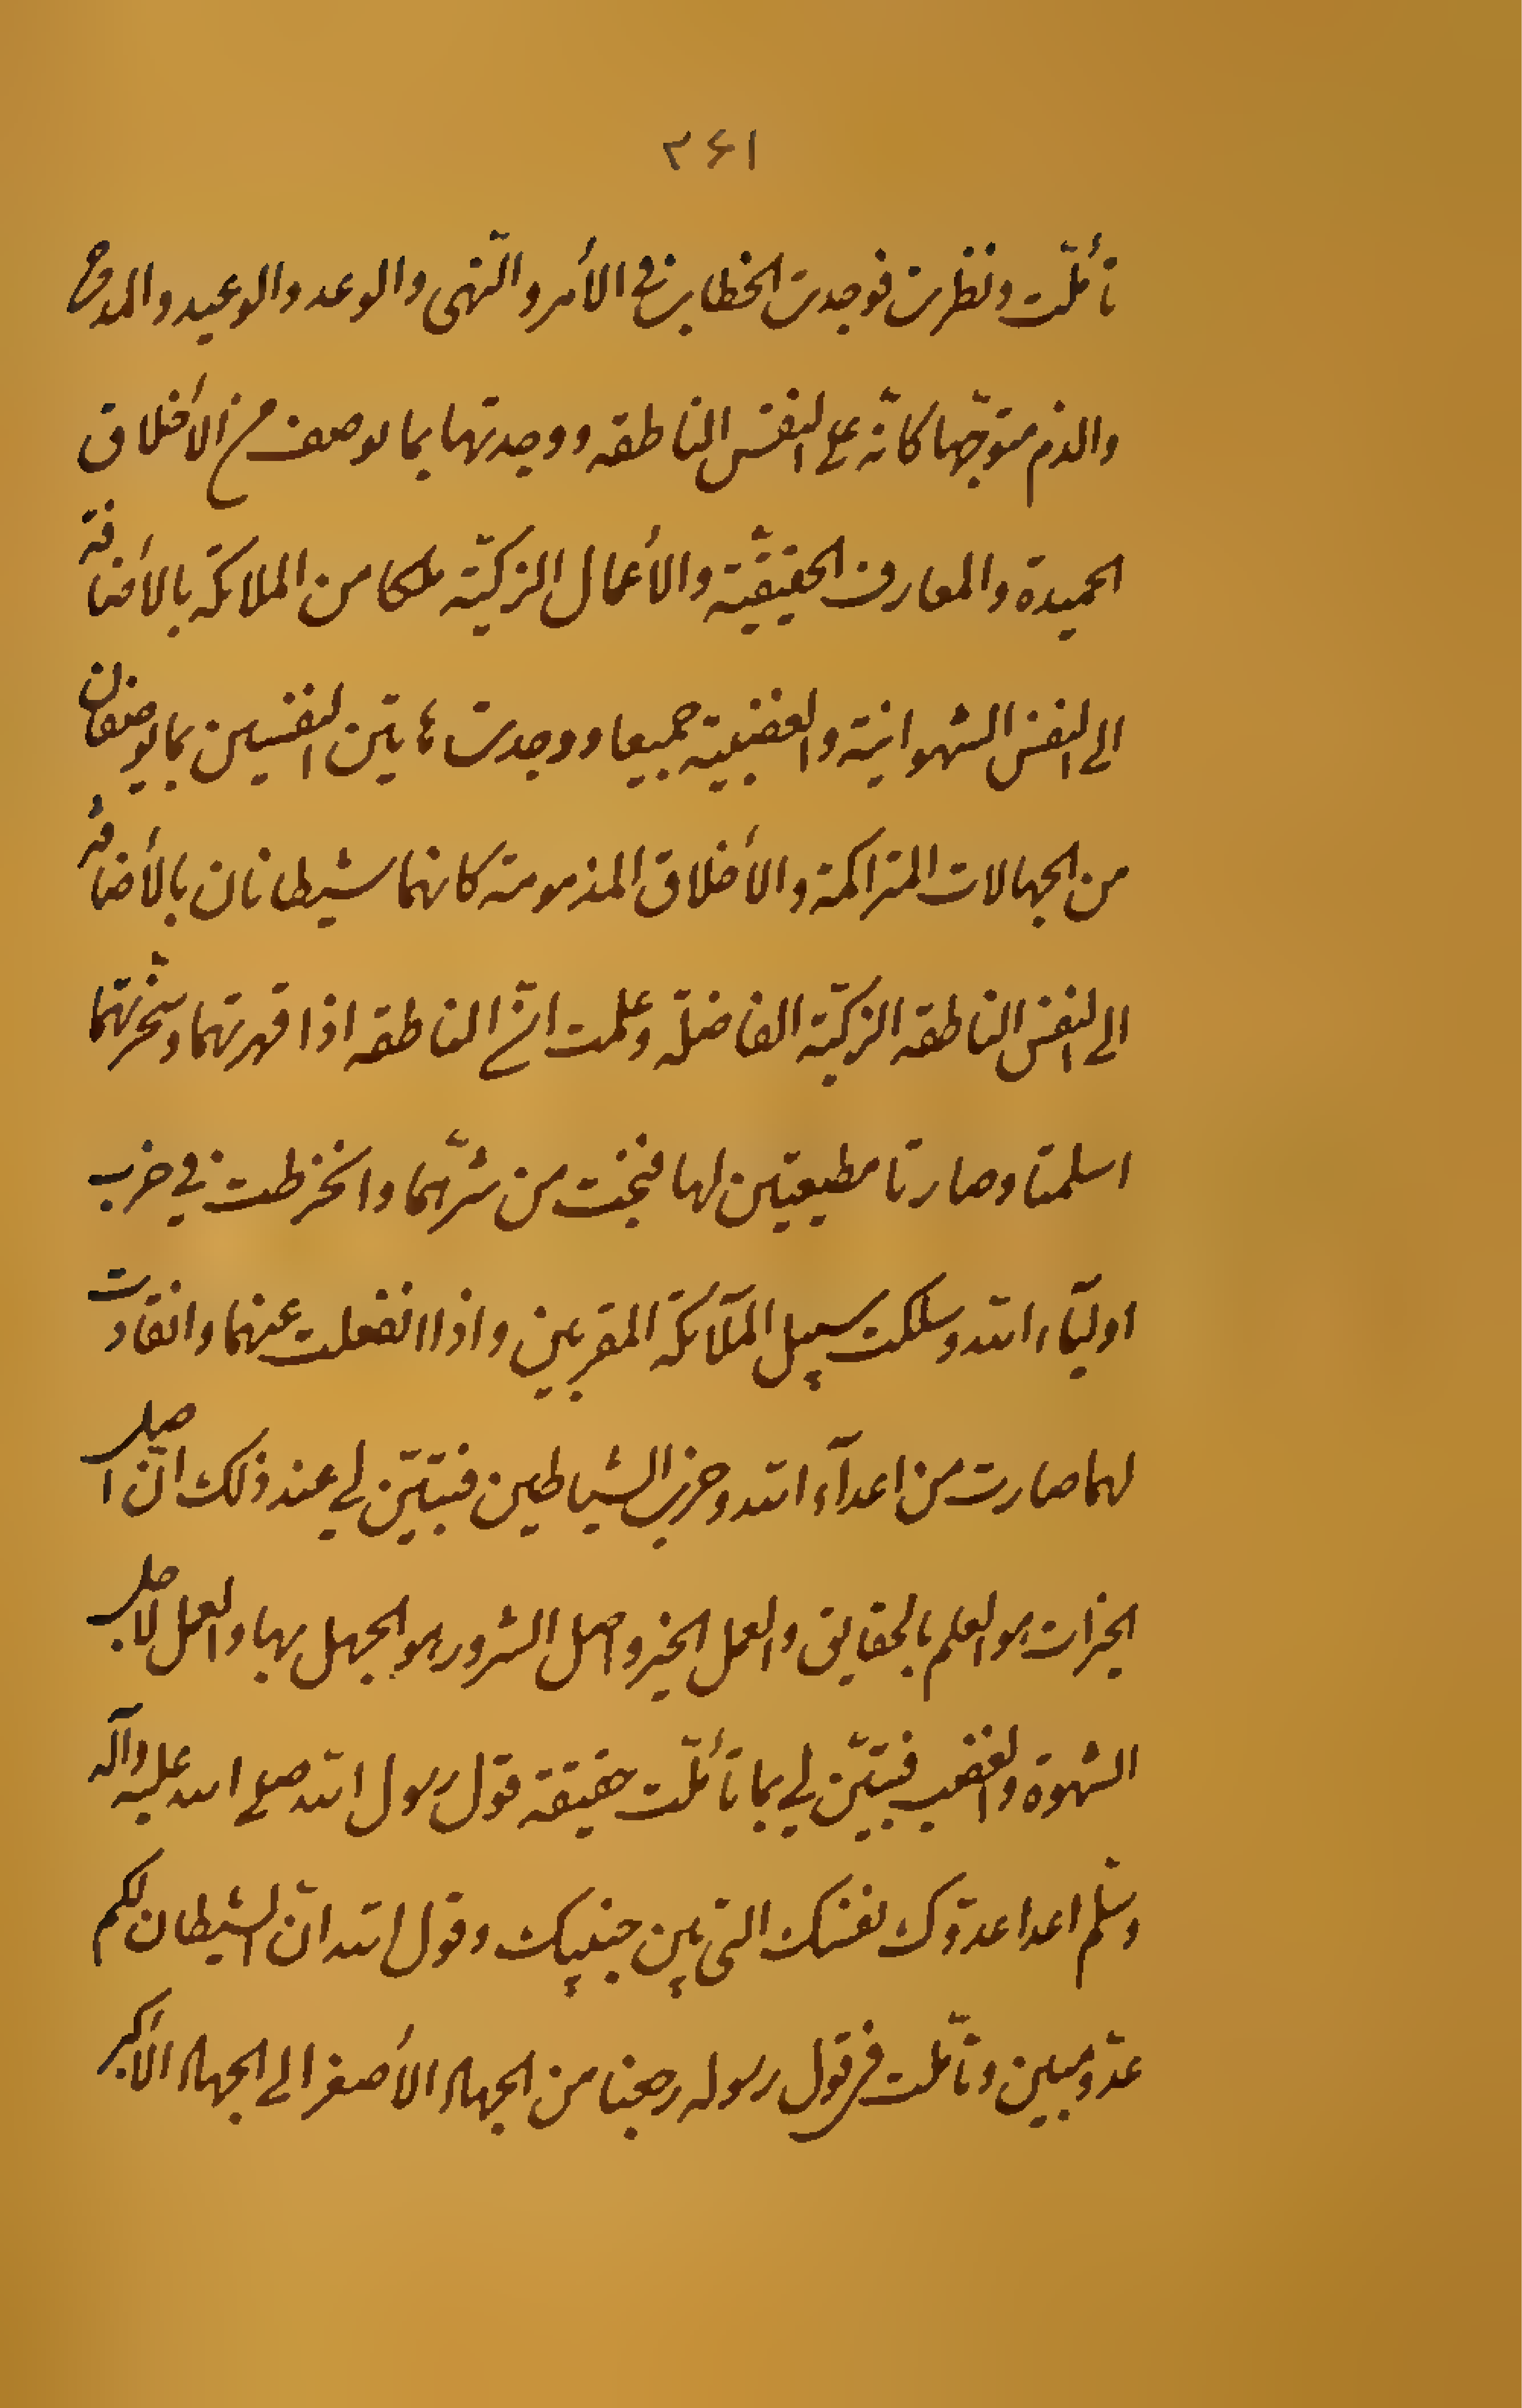 ٣٤١
تأمّلت ونظرت فوجدت الخطاب في الأمر والنّهى والوعد والوعيد والمدح
والذم متوجّها كانّه على النفس الناطقه ووجدتها بما توصف من الأخلاق
الحميدة والمعارف الحقيقيّة والأعمال الزكيّه ملكا من الملائكه بالأضافة
الى النفس الشهوانية والغضبية جميعا ووجدت هاتين النفسين بما يوصفان
من الجهالات المتراكمة والأخلاق المذمومة كانهما شيطانان بالأضافة
الى النفس الناطقه الزكيّه الفاضلة وعلمت انّ الناطقه اذا قهرتهما وسخّرتهما
اسلمتا وصارتا مطيعتين لها فنجت من شرّهما وانخرطت في حزب
اوليآء الله وسلكت سبيل الملآئكة المقربين واذا انفعلت عنهما وانقادت
لهما صارت من اعدآء الله وحزب الشياطين فتبيّن لي عند ذلك انّ اصل
الخيرات هو العلم بالحقايق والعمل الخير واصل الشرور هو الجهل بها والعمل لاجل
الشهوة والغضب فتبيّن لي بما تأمّلت حقيقة قول رسول الله صلى الله عليه وآله
وسلّم اعدا عدوّك نفسك التى بين جنبيك وقول الله انّ الشيطان لكم
عدّو مبين وتأمّلت في قول رسوله رجعنا من الجهاد الأصغر الى الجهاد الأكبر